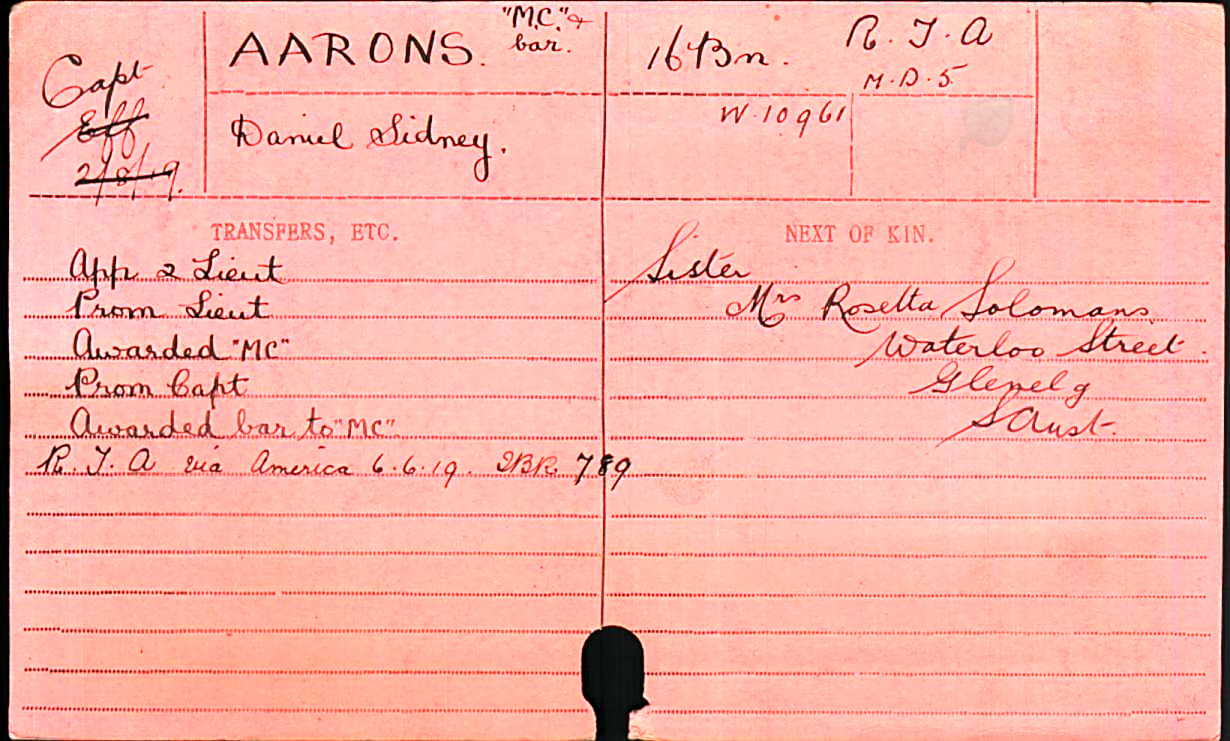 Capt
Eff
2/8/19.
AARONS. "M.C." &
bar.
Daniel Sidney.
16 Bn.
R. T. A
M.D.5
W.10961
TRANSFERS, ETC.
App 2 Lieut
Prom Lieut
Awarded "MC"
Prom Capt
Awarded bar to "MC".
R. T. A via America 6.6.19. 789
NEXT OF KIN.
Sister
Mrs Rosetta Solomans
Waterloo Street.
Glenelg
S Aust.